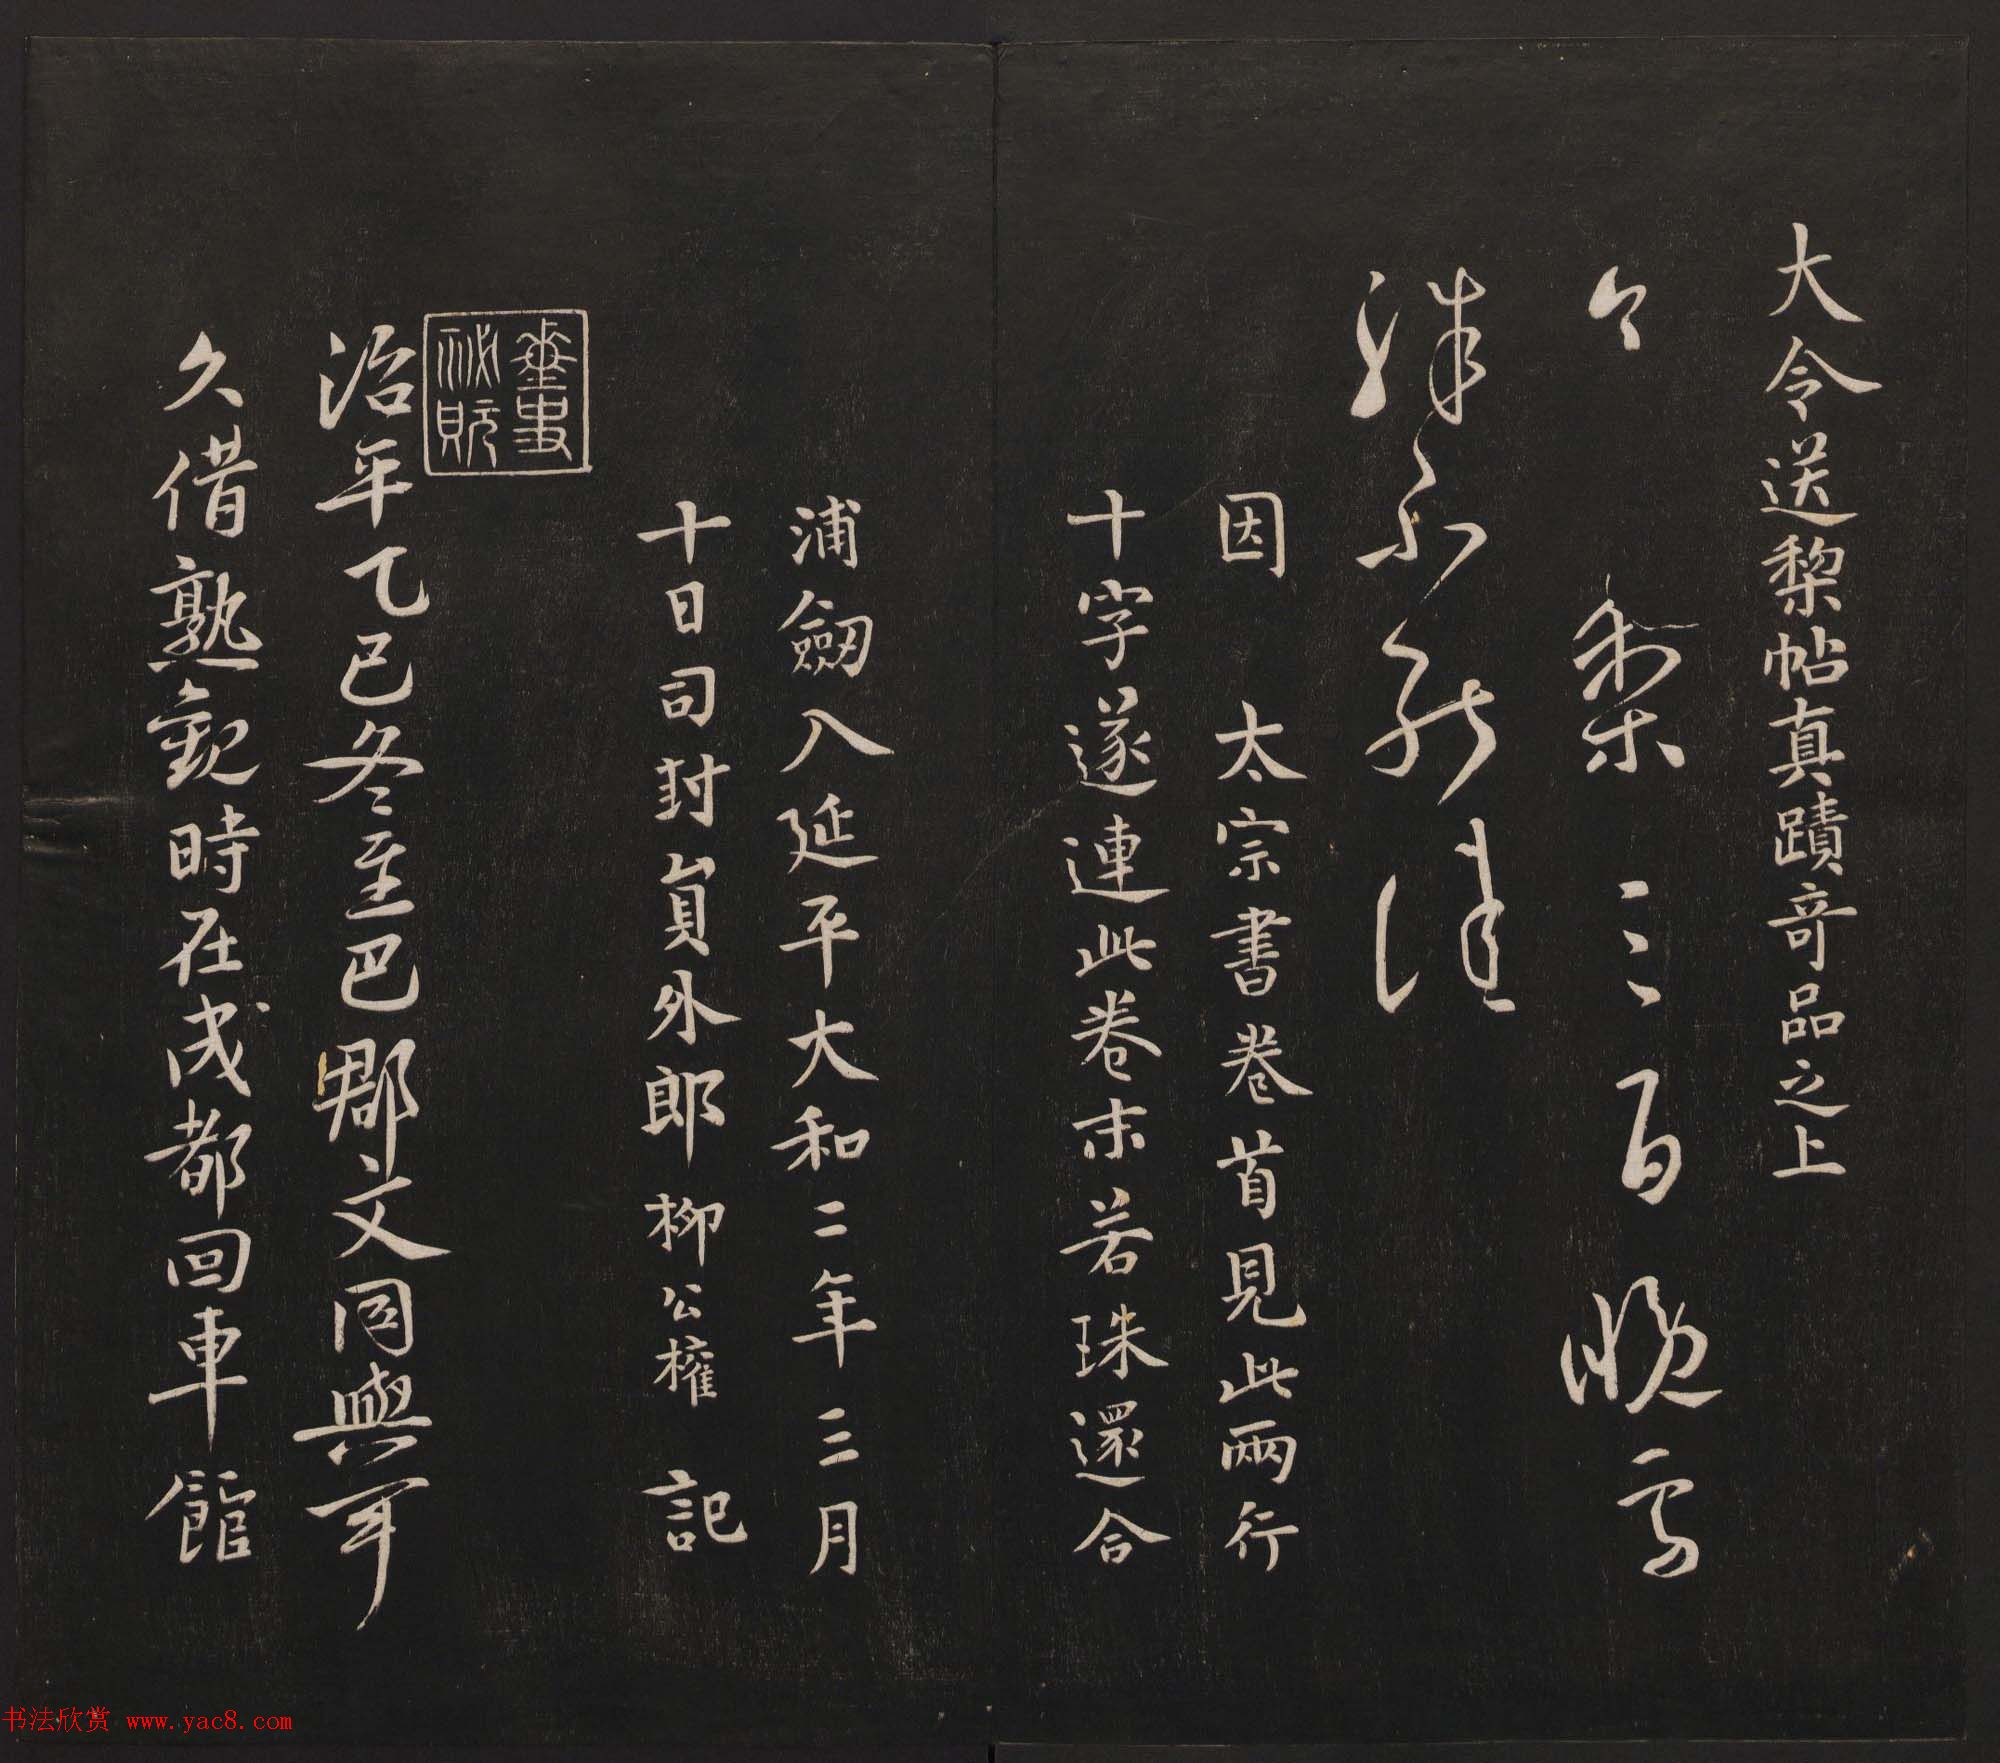 大令送梨帖真蹟奇品之上
今 梨三百 晚雪
殊不能佳
因 太宗書卷首見此兩行
十字遂連此卷末若珠還合
浦劒入延平大和二年三月
十日司封貟外郎 柳公權 記
治平乙巳冬至巴郡文同與可
久借熟觀時在成都回車館
書法欣赏 www.yac8.com